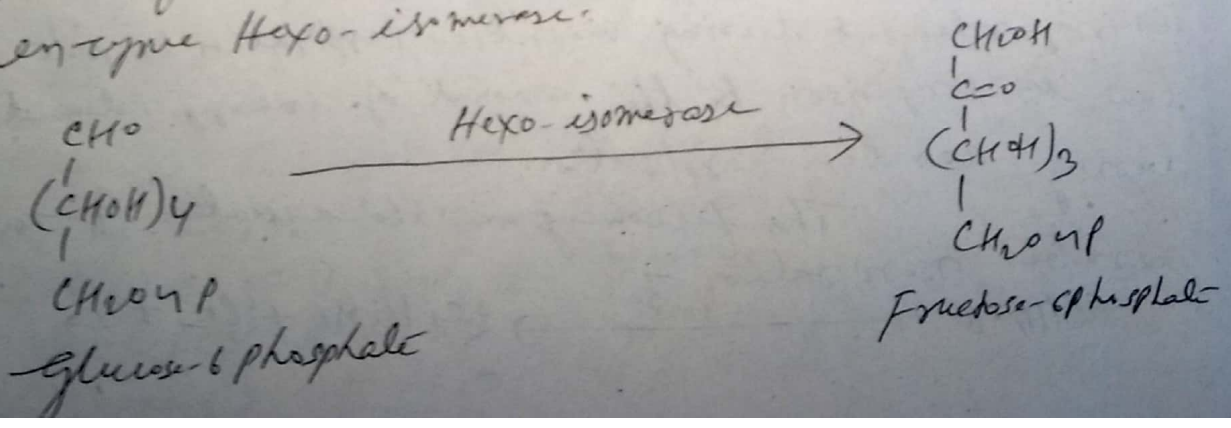 enzyme Hexo-isomerase.
CHO
(CHOH)4
CH2O~P
Glucose-6 phosphate
Hexo-isomerase
CH2OH
C=O
(CHOH)3
CH2O~P
Fructose-6phosphate